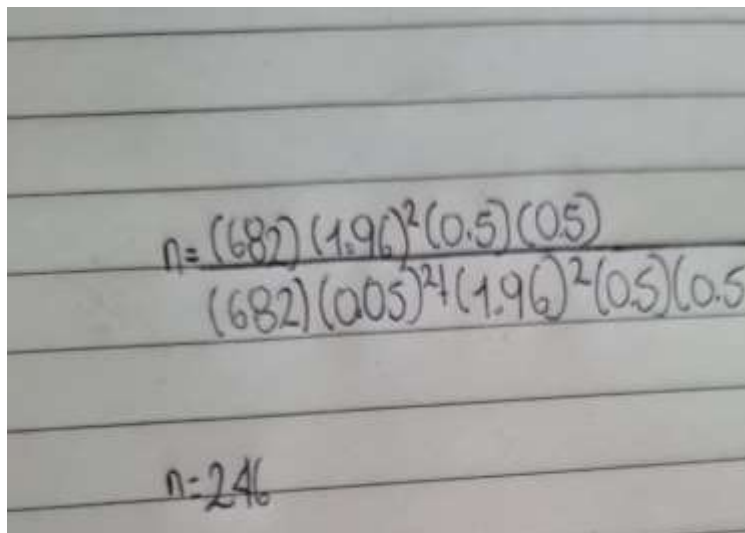 n= (682) (1.96)² (0.5) (0.5)
(682) (0.05)²+(1.96)² (0.5) (0.5
n= 246